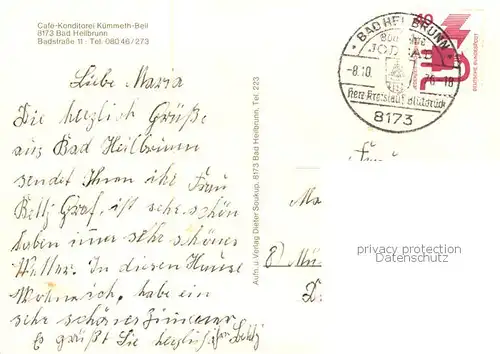 Café-Konditorei Kümmeth-Beil
8173 Bad Heilbrunn
Badstraße 11 · Tel. 08046/273
Liebe Maria
Die herzlich Grüße
aus Bad Heilbrunn
sendet Ihnen ihr Frau
Betty Graf, ist sehr schön
haben imer sehr schönes
Wetter. In diesen Hause
Wohne ich, habe ein
sehr schönes Zimmer
Es grüßt Sie herzlich
Aufn. u. Verlag Dieter Soukup, 8173 Bad Heilbrunn, Tel. 223
BAD HEILBRUNN
JODBAD
-8.10. 76-18
8173
40
DEUTSCHE BUNDESPOST
Frau
Ma
8) Mü
privacy protection
Datenschutz